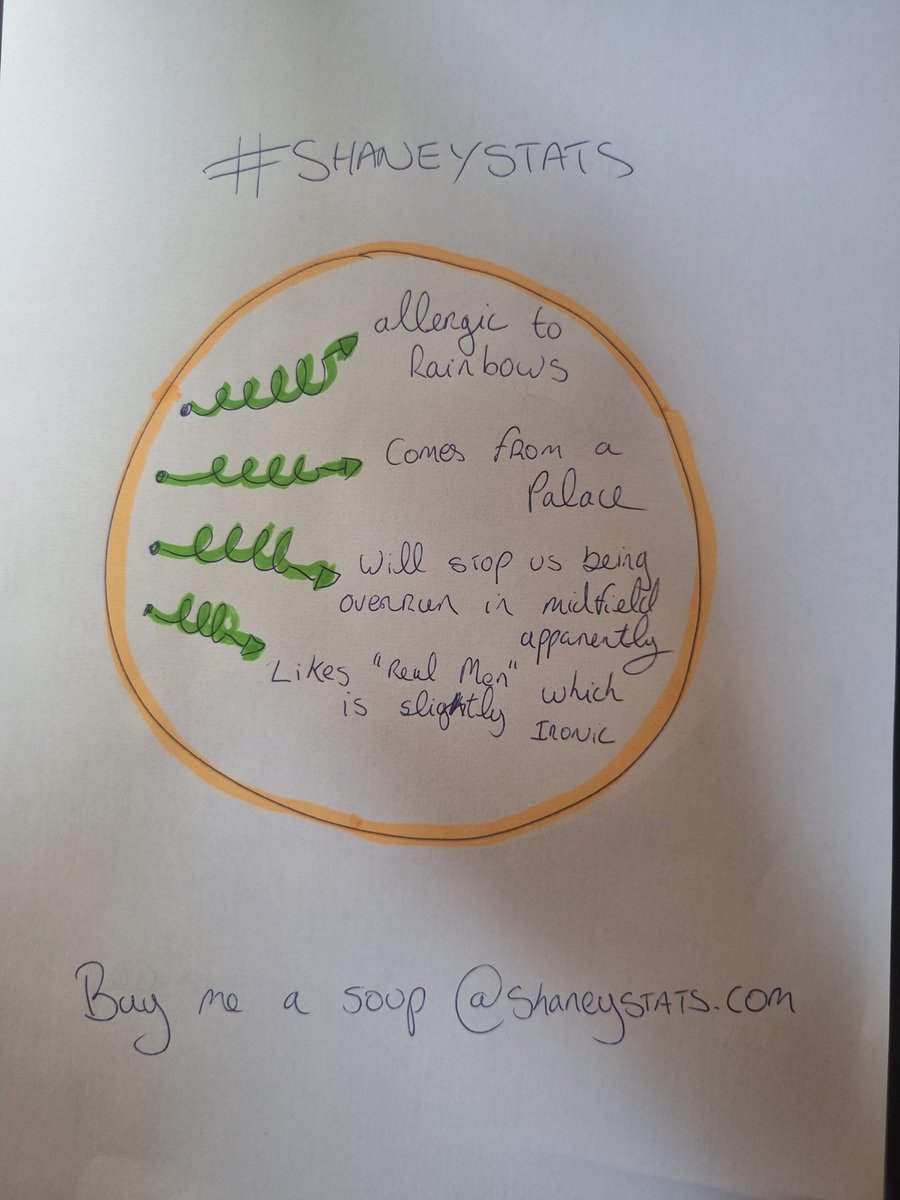 #SHANEYSTATS
allergic to
Rainbows
Comes from a
Palace
Will stop us being
overrun in midfield
apparently
Likes "Real Men" which
is slightly Ironic
Buy me a soup @shaneystats.com